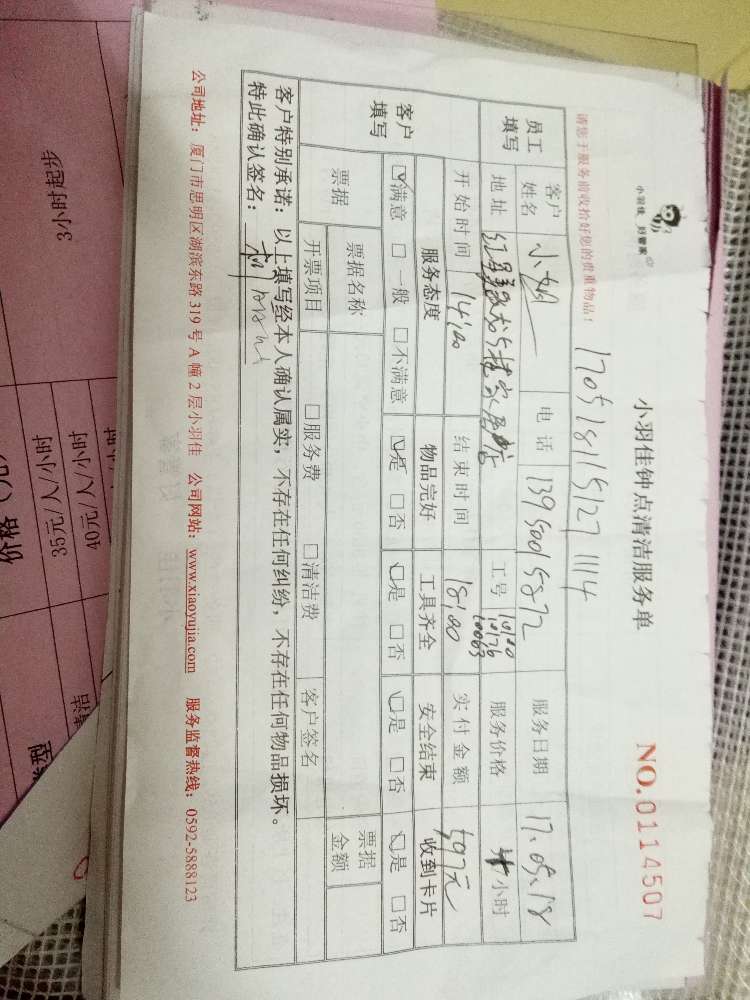 小羽佳 好管家
小羽佳钟点清洁服务单
NO.0114507
请您于服务前收拾好您的贵重物品！
170518115127 1114
员工填写
客户姓名 小姐 电话 13950015872 服务日期 17.05.18
地址 工号 10063 服务价格 4小时
开始时间 14:00 结束时间 18:00 实付金额
客户填写
服务态度 物品完好 工具齐全 安全结束 收到卡片
☑满意 □一般 □不满意 ☑是 □否 ☑是 □否 ☑是 □否 ☑是 □否
票据 票据名称 票据金额
开票项目 □服务费 □清洁费 客户签名
客户特别承诺：以上填写经本人确认属实，不存在任何纠纷，不存在任何物品损坏。
特此确认签名：
公司地址：厦门市思明区湖滨东路319号A幢2层小羽佳 公司网站：www.xiaoyujia.com 服务监督热线：0592-5888123
3小时起步
35元/人/小时
40元/人/小时